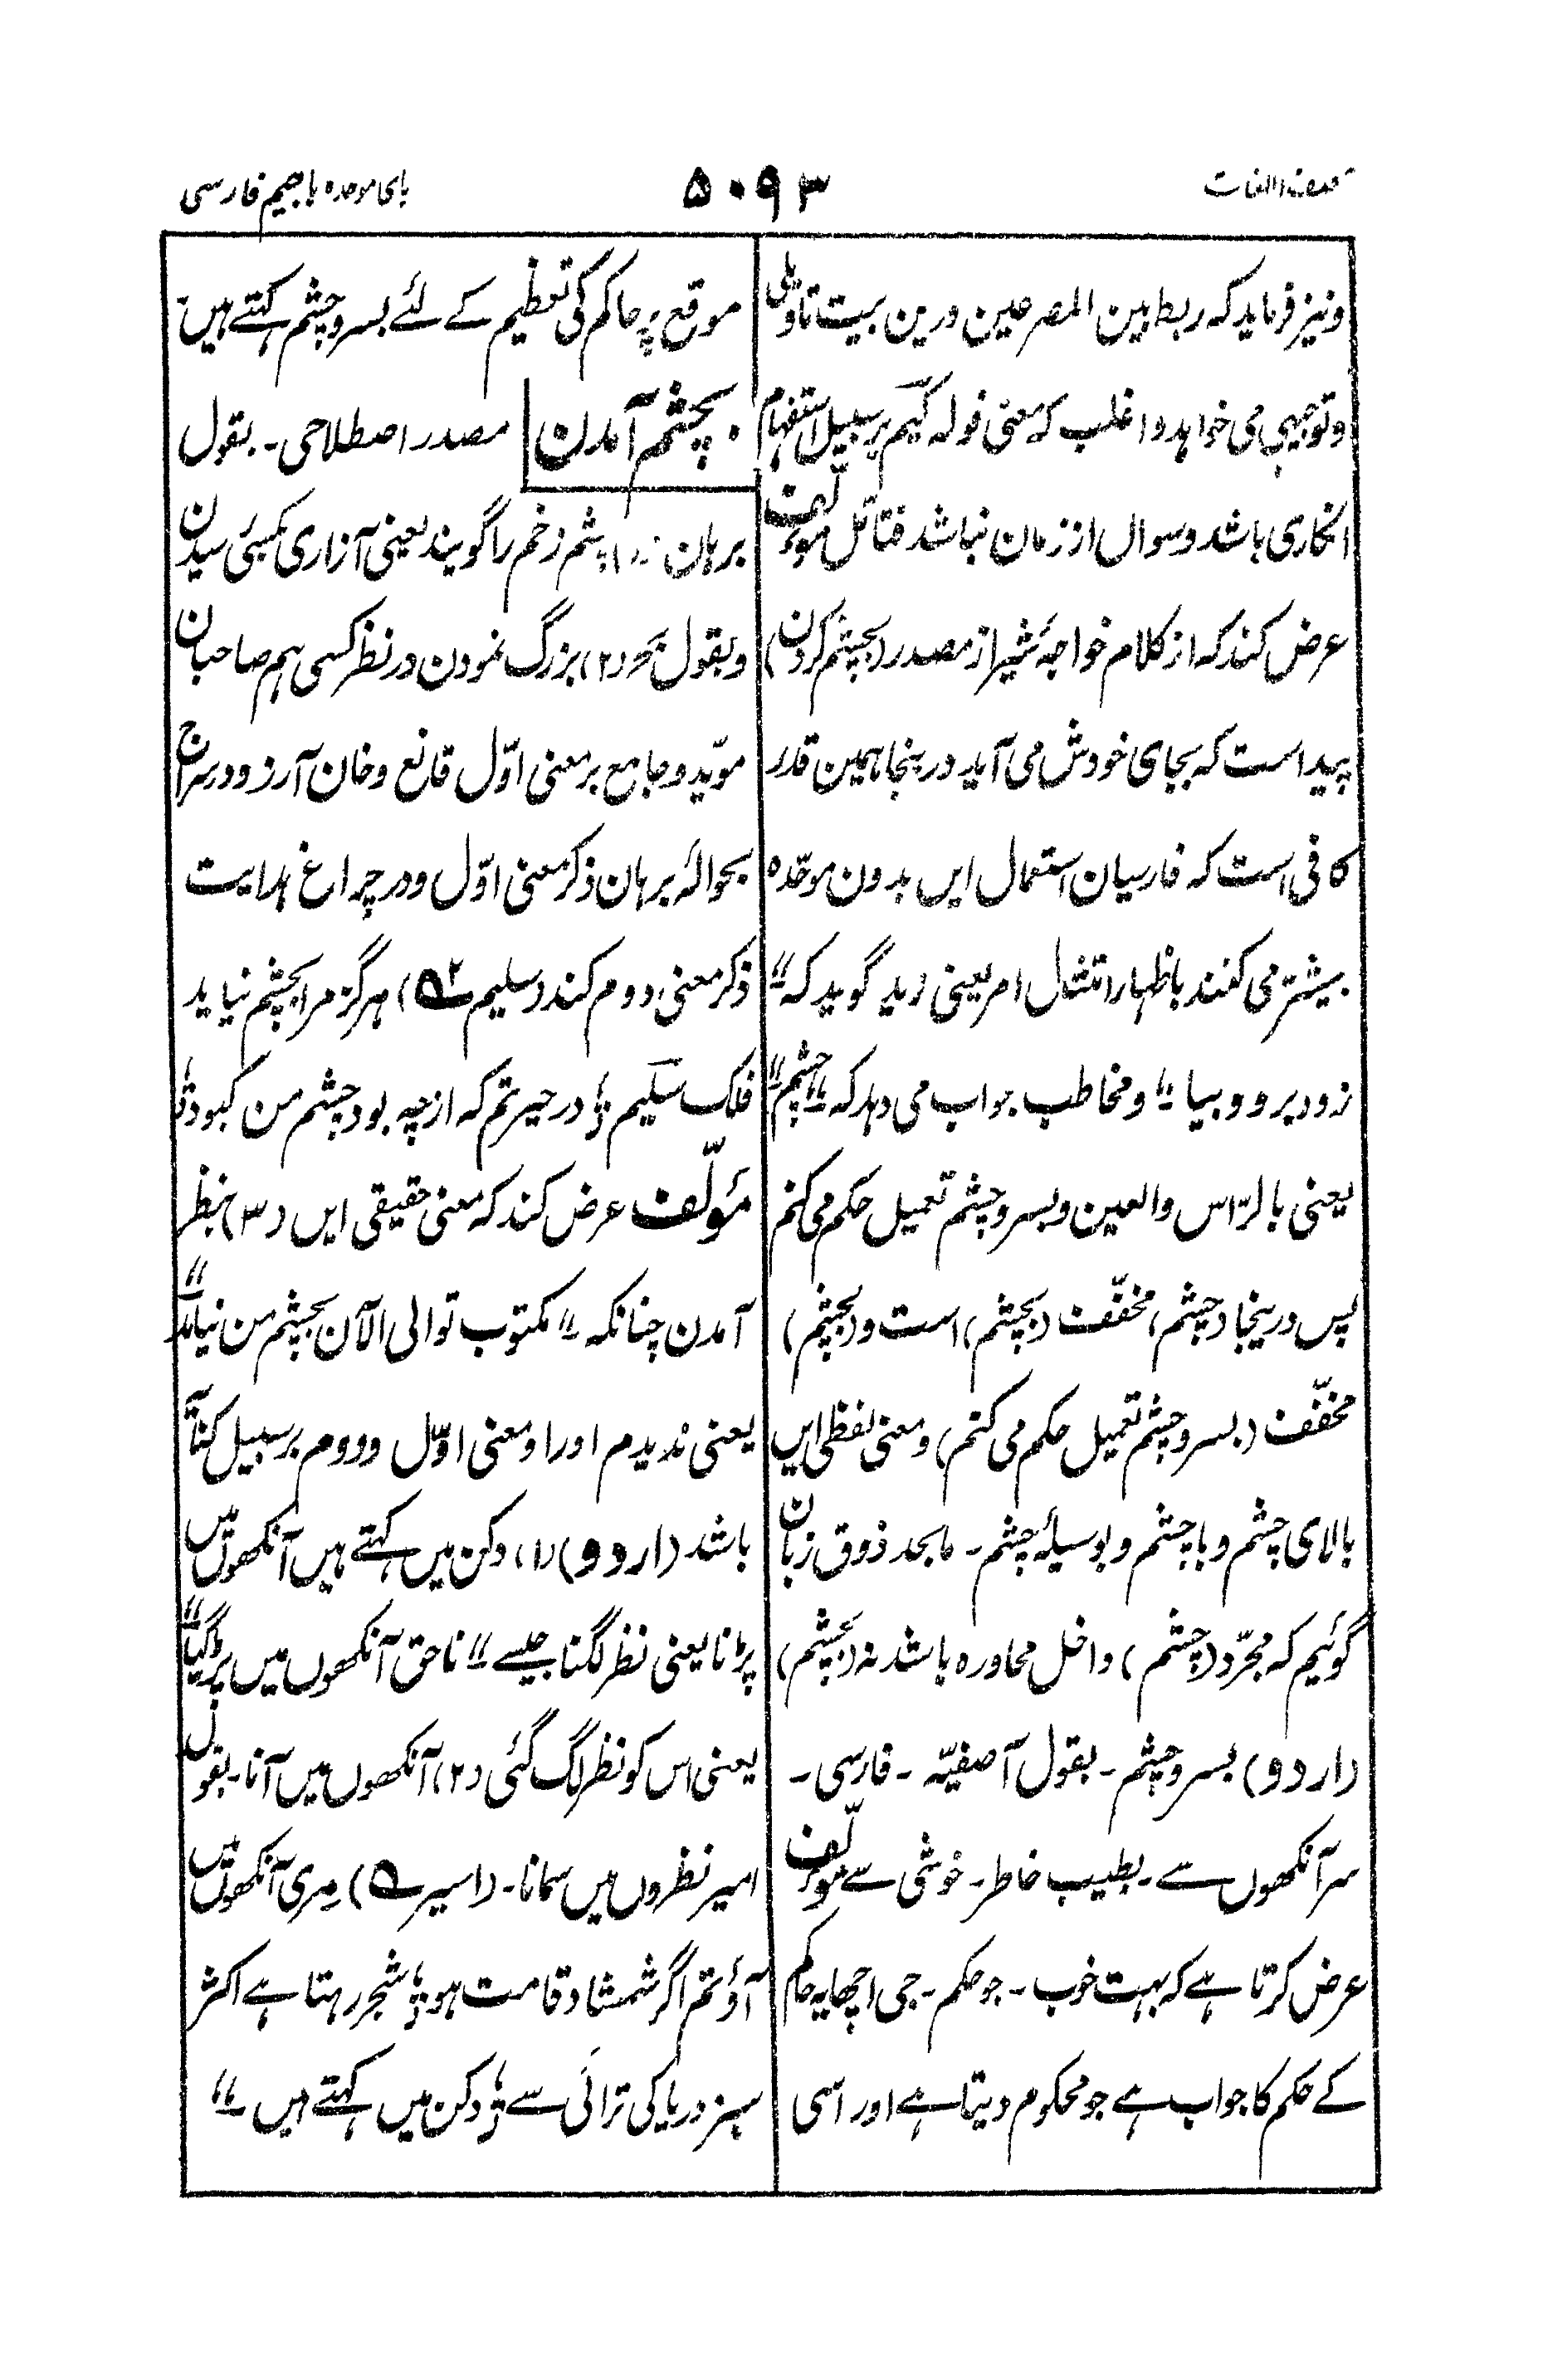 آصف اللغات
۵۰۹۳
بای موحده باجیم فارسی
ونیز فرماید که ربط بین المصرعین درین بیت تاویلی
وتوجیهی می خواهد و اغلب که معنی قوله کیَم بر سبیل استفهام
انکاری باشد و سوال از زمان نباشد فتائل مؤلّف
عرض کند که از کلام خواجۂ شیراز مصدر (بچشم کردن)
پیداست که بجای خودش می آید درینجا همین قدر
کافی است که فارسیان استعمال ایں بدون موحّده
بیشتر می کنند باظهار امتثال امر یعنی زید گوید که "
زود برو و بیا" و مخاطب جواب می دهد که "چشم"
یعنی بالرّاس والعین و بسر و چشم تعمیل حکم می کنم
پس درینجا (چشم) مخفّف (بچشم) است و (بچشم)
مخفّف (بسر و چشم تعمیل حکم می کنم) و معنی لفظی ایں
بالای چشم و با چشم و بوسیلۂ چشم ـ ما بجد ذوق زبان
گوئیم که مجرّد (چشم) داخل محاوره باشد نه (بچشم)
(اردو) بسر و چشم ـ بقول آصفیّه ـ فارسی ـ
سر آنکھوں سے ـ بطیب خاطر ـ خوشی سے مؤلّف
عرض کرتا ہے کہ بہت خوب ـ جو حکم ـ جی اچھا یہ حاکم
کے حکم کا جواب ہے جو محکوم دیتا ہے اور اسی
موقع پر حاکم کی تعظیم کے لئے بسر و چشم کہتے ہیں ـ
بچشم آمدن مصدر اصطلاحی ـ بقول
برہان (۱) چشم زخم را گویند یعنی آزاری بکسی رسیدن
و بقول بحر (۲) بزرگ نمودن در نظر کسی ہم صاحبان
مویّد و جامع بر معنی اوّل قانع و خان آرزو در سراج
بحوالۂ برہان ذکر معنی اوّل و در چراغ ہدایت
ذکر معنی دوم کند (سلیم ؎) ہرگز مرا بچشم نیاید
فلک سلیم ؛ در حیرتم که از چه بود چشم من کبود ؛
مؤلّف عرض کند که معنی حقیقی ایں (۳) بنظر
آمدن چنانکه "مکتوب تو الی الآن بچشم من نیامد"
یعنی ندیدم او را و معنی اوّل و دوم بر سبیل کنایه
باشد (اردو) (۱) دکن میں کہتے ہیں آنکھوں میں
پڑنا یعنی نظر لگنا جیسے "ناحق آنکھوں میں پڑگیا"
یعنی اس کو نظر لگ گئی (۲) آنکھوں میں آنا ـ بقول
امیر نظروں میں سمانا ـ (اسیر ؎) مری آنکھوں میں
آؤ تم اگر شمشاد قامت ہو ؛ شجر رہتا ہے اکثر
سبز دریا کی ترائی سے ؛ دکن میں کہتے ہیں "